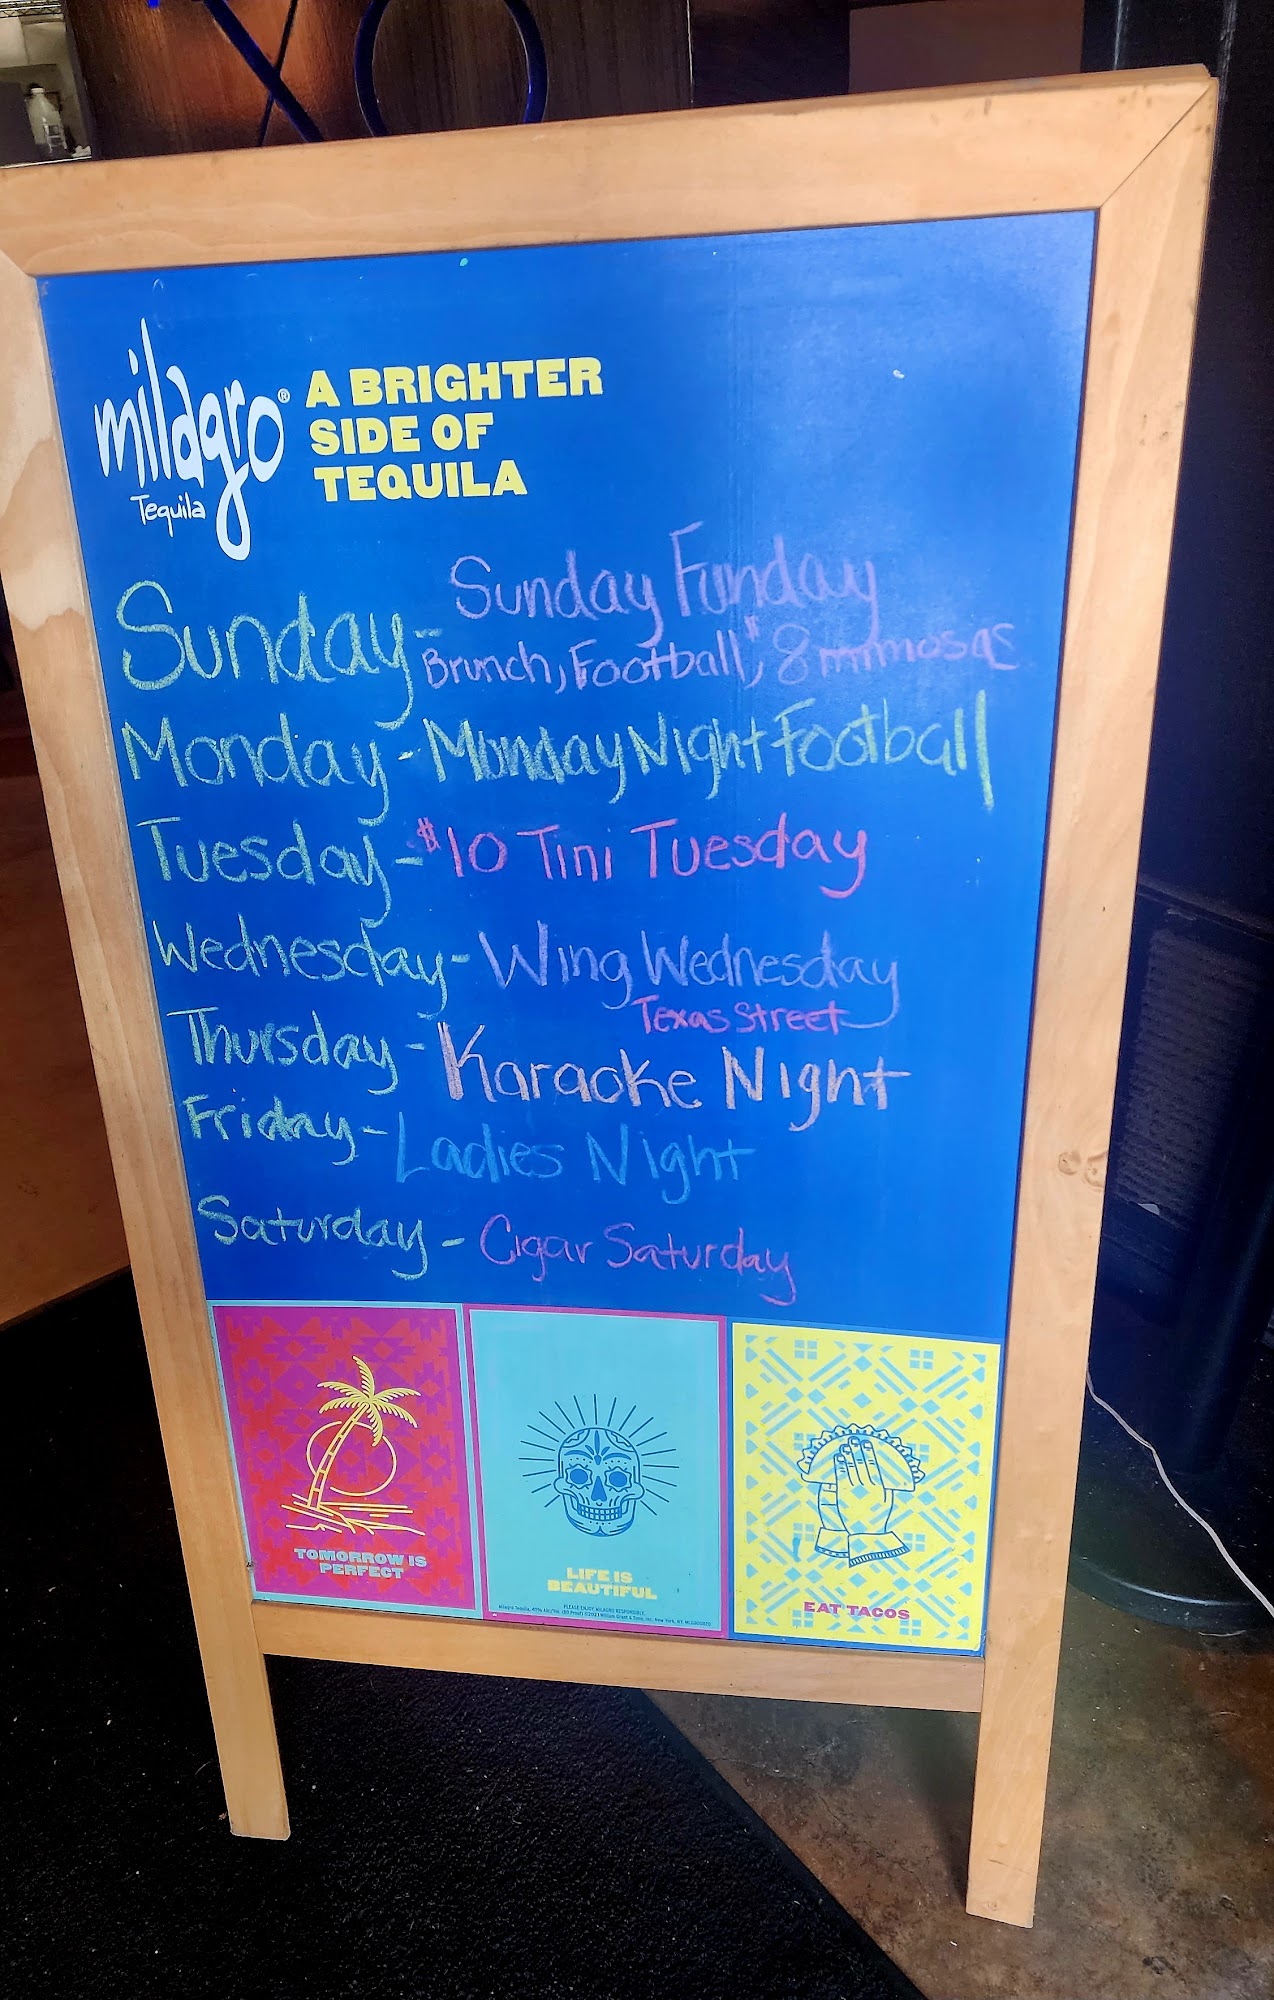 XO
milagro®
Tequila
A BRIGHTER
SIDE OF
TEQUILA
Sunday - Sunday Funday
Brunch, Football, $8 mimosas
Monday - Monday Night Football
Tuesday - $10 Tini Tuesday
Wednesday - Wing Wednesday
Texas Street
Thursday - Karaoke Night
Friday - Ladies Night
Saturday - Cigar Saturday
TOMORROW IS
PERFECT
LIFE IS
BEAUTIFUL
PLEASE ENJOY MILAGRO RESPONSIBLY.
EAT TACOS